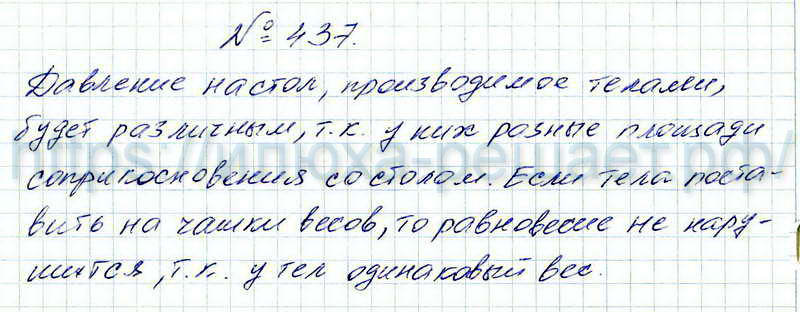 № 437.
Давление на стол, производимое телами,
будет различным, т.к. у них разные площади
соприкосновения со столом. Если тела поста-
вить на чашки весов, то равновесие не нару-
шится, т.к. у тел одинаковый вес.